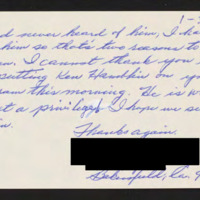 1-
d never heard of him, I ha
him so that's two reasons to
m. I cannot thank you
putting Ken Hamblin on yo
am this morning. He is w
at a privilege I hope we s
in.
Thanks again.
Bakersfield, Ca. 9